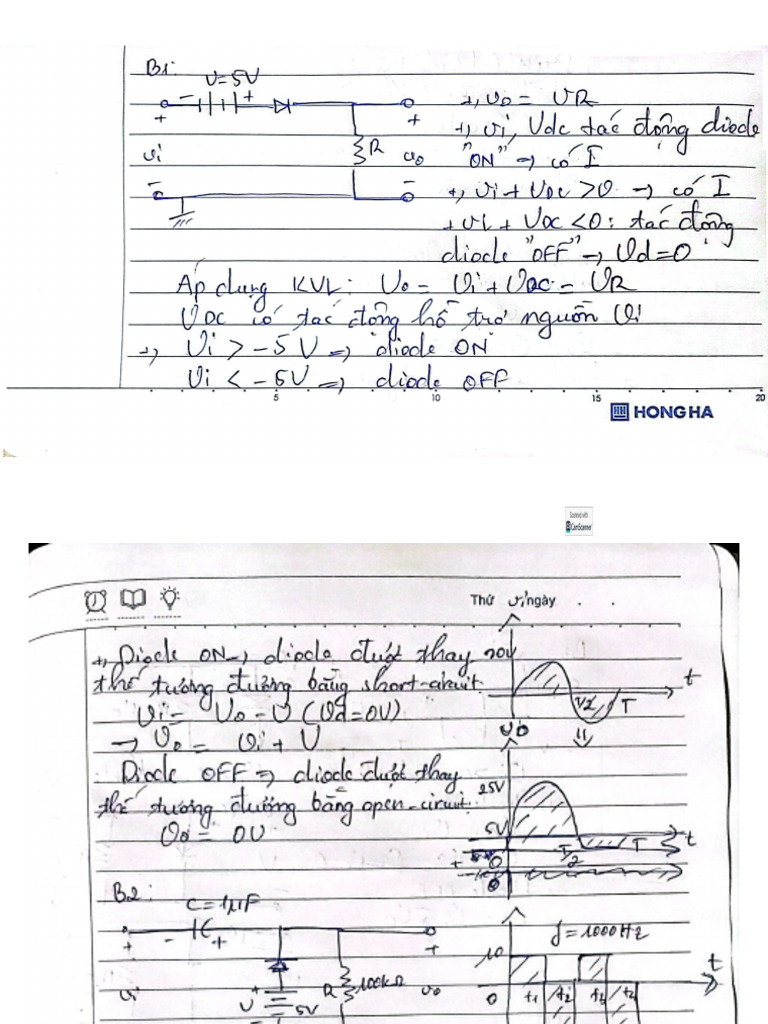 B1:
V=5V
+, vo = VR
- +
+, vi, Vdc tác động diode
+ + R
vi vo "ON" → có I
- -
+, vi + VDC > 0 → có I
+ vi + VDC < 0: tác động
diode "OFF" → Vd=0
Áp dụng KVL: Vo = Vi + VDC = VR
VDC có tác động hỗ trợ nguồn Vi
+, Vi > -5V → diode ON
Vi < -5V → diode OFF
5 10 15 20
HONG HA
Scanned with
CamScanner
Thứ ngày
vi
+, Diode ON → diode được thay 20V
thế tương đương bằng short-circuit. t
T/2 T
Vi = Vo - V (Vd=0V)
→ Vo = Vi + V
vo
Diode OFF ⇒ diode được thay
25V
thế tương đương bằng open-circuit.
Vo = 0V
5V
t
0 T/2 T
B2:
C=1μF
f=1000Hz
- C +
+ + 10
t
R 100kΩ
vi V 5V vo
0 t1 t2 t3 t4